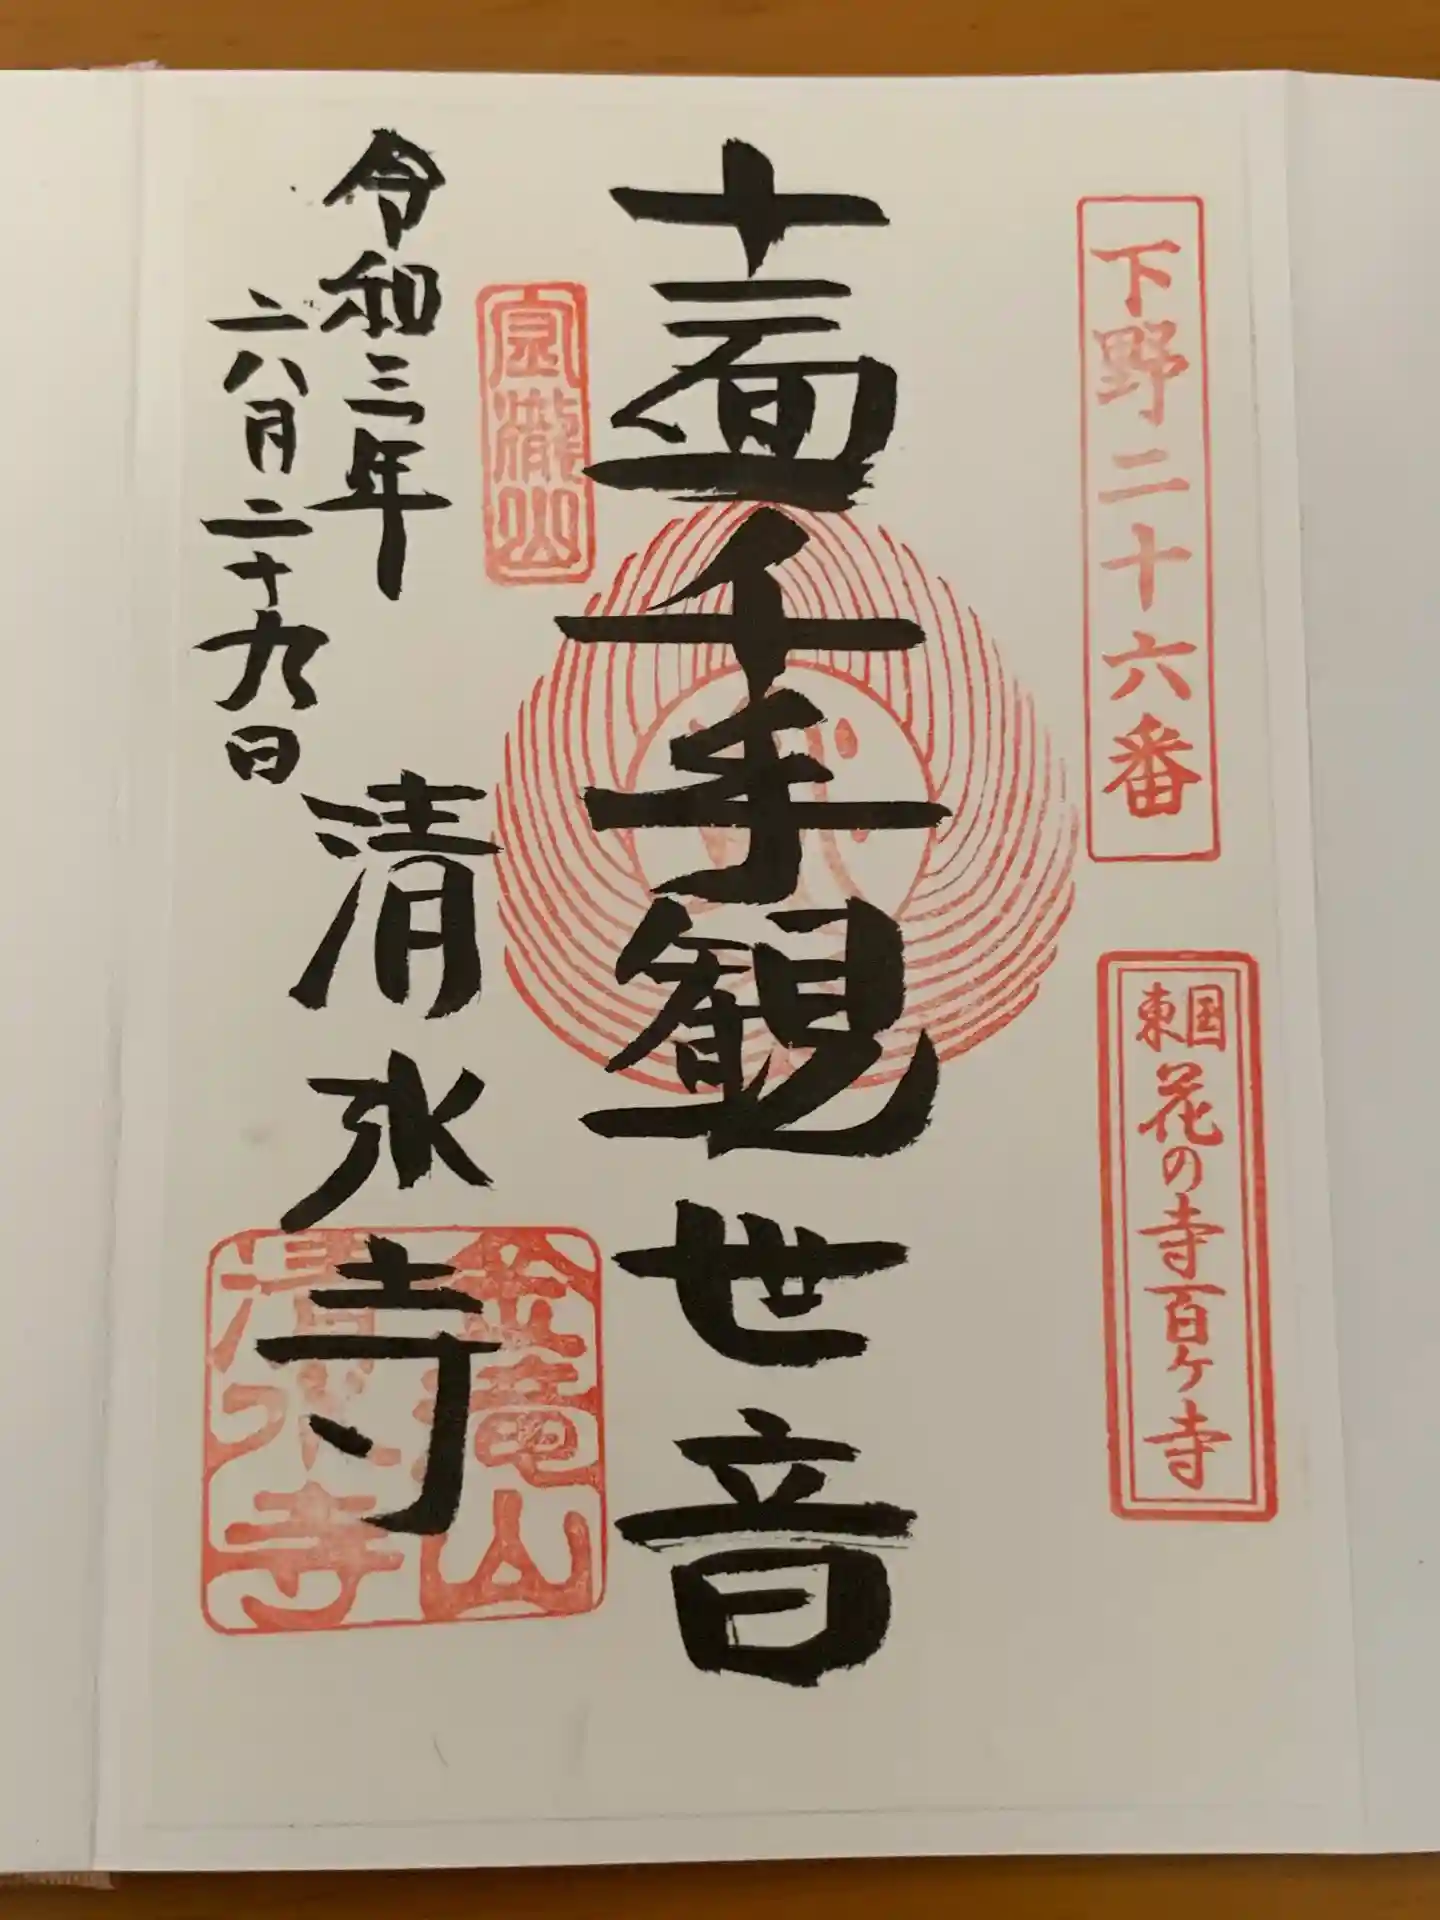 下野二十六番
東国花の寺百ヶ寺
十一面千手観世音
瀧山
清水寺
金竜山
清水寺
令和三年
六月二十九日